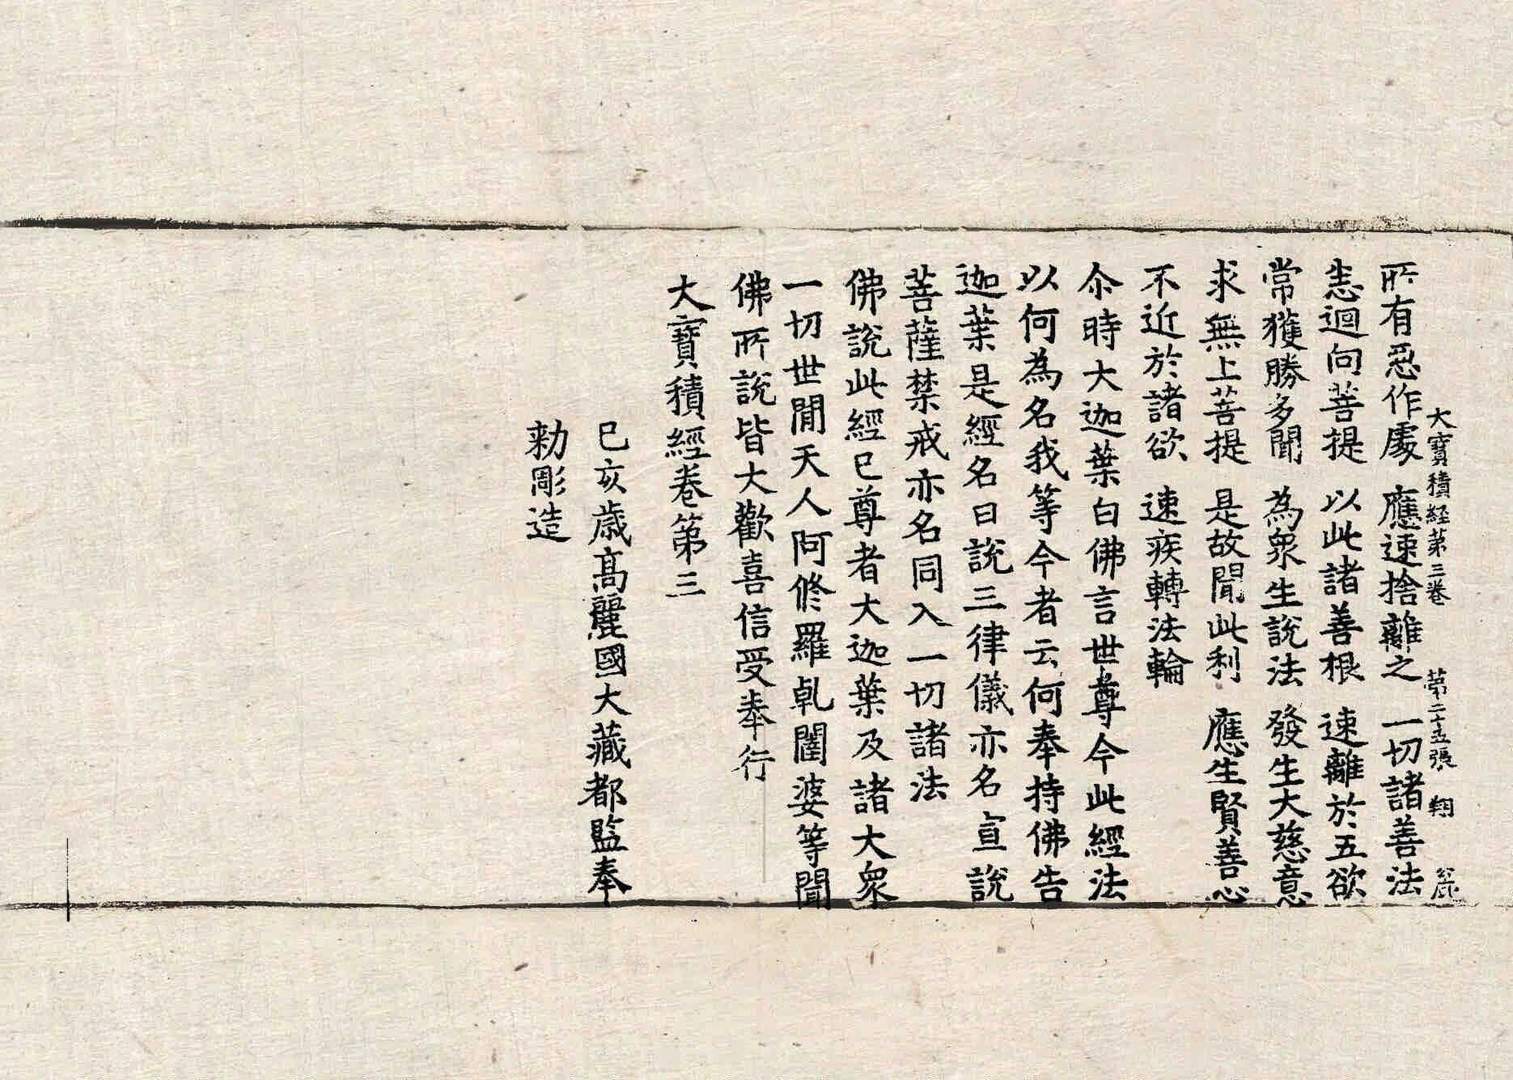 大寶積経第三卷 第二十五張 翔
所有惡作處 應速捨離之 一切諸善法
悉迴向菩提 以此諸善根 速離於五欲
常獲勝多聞 為衆生說法 發生大慈意
求無上菩提 是故聞此利 應生賢善心
不近於諸欲 速疾轉法輪
尒時大迦葉白佛言世尊今此經法
以何為名我等今者云何奉持佛告
迦葉是經名曰說三律儀亦名宣說
菩薩禁戒亦名同入一切諸法
佛說此經已尊者大迦葉及諸大衆
一切世間天人阿脩羅乹闥婆等聞
佛所說皆大歡喜信受奉行
大寶積經卷第三
己亥歲高麗國大藏都監奉
勑彫造